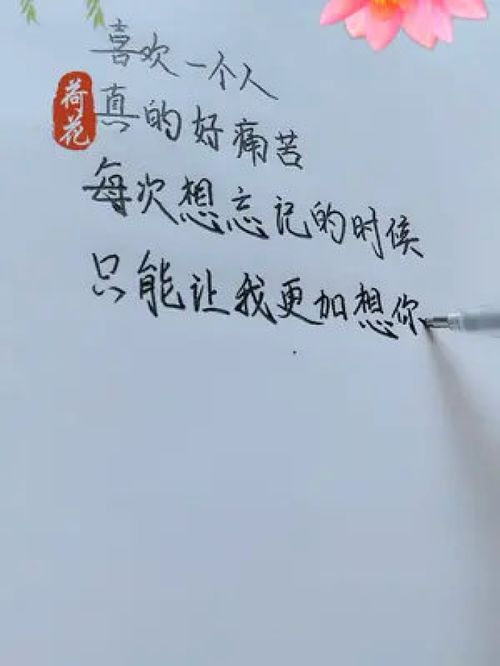 喜欢一个人
荷花
真的好痛苦
每次想忘记的时候
只能让我更加想你